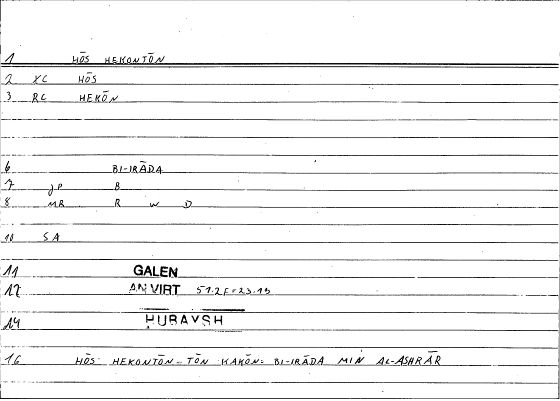 1 HŌS HEKONTŌN
2 XC HŌS
3 RC HEKŌN
6 BI-IRĀDA
7 JP B
8 MR R W D
10 SA
11 GALEN
12 AN VIRT 51.2F=23.19
14 HUBAYSH
16 HŌS HEKONTŌN-TŌN KAKŌN= BI-IRĀDA MIN AL-ASHRĀR